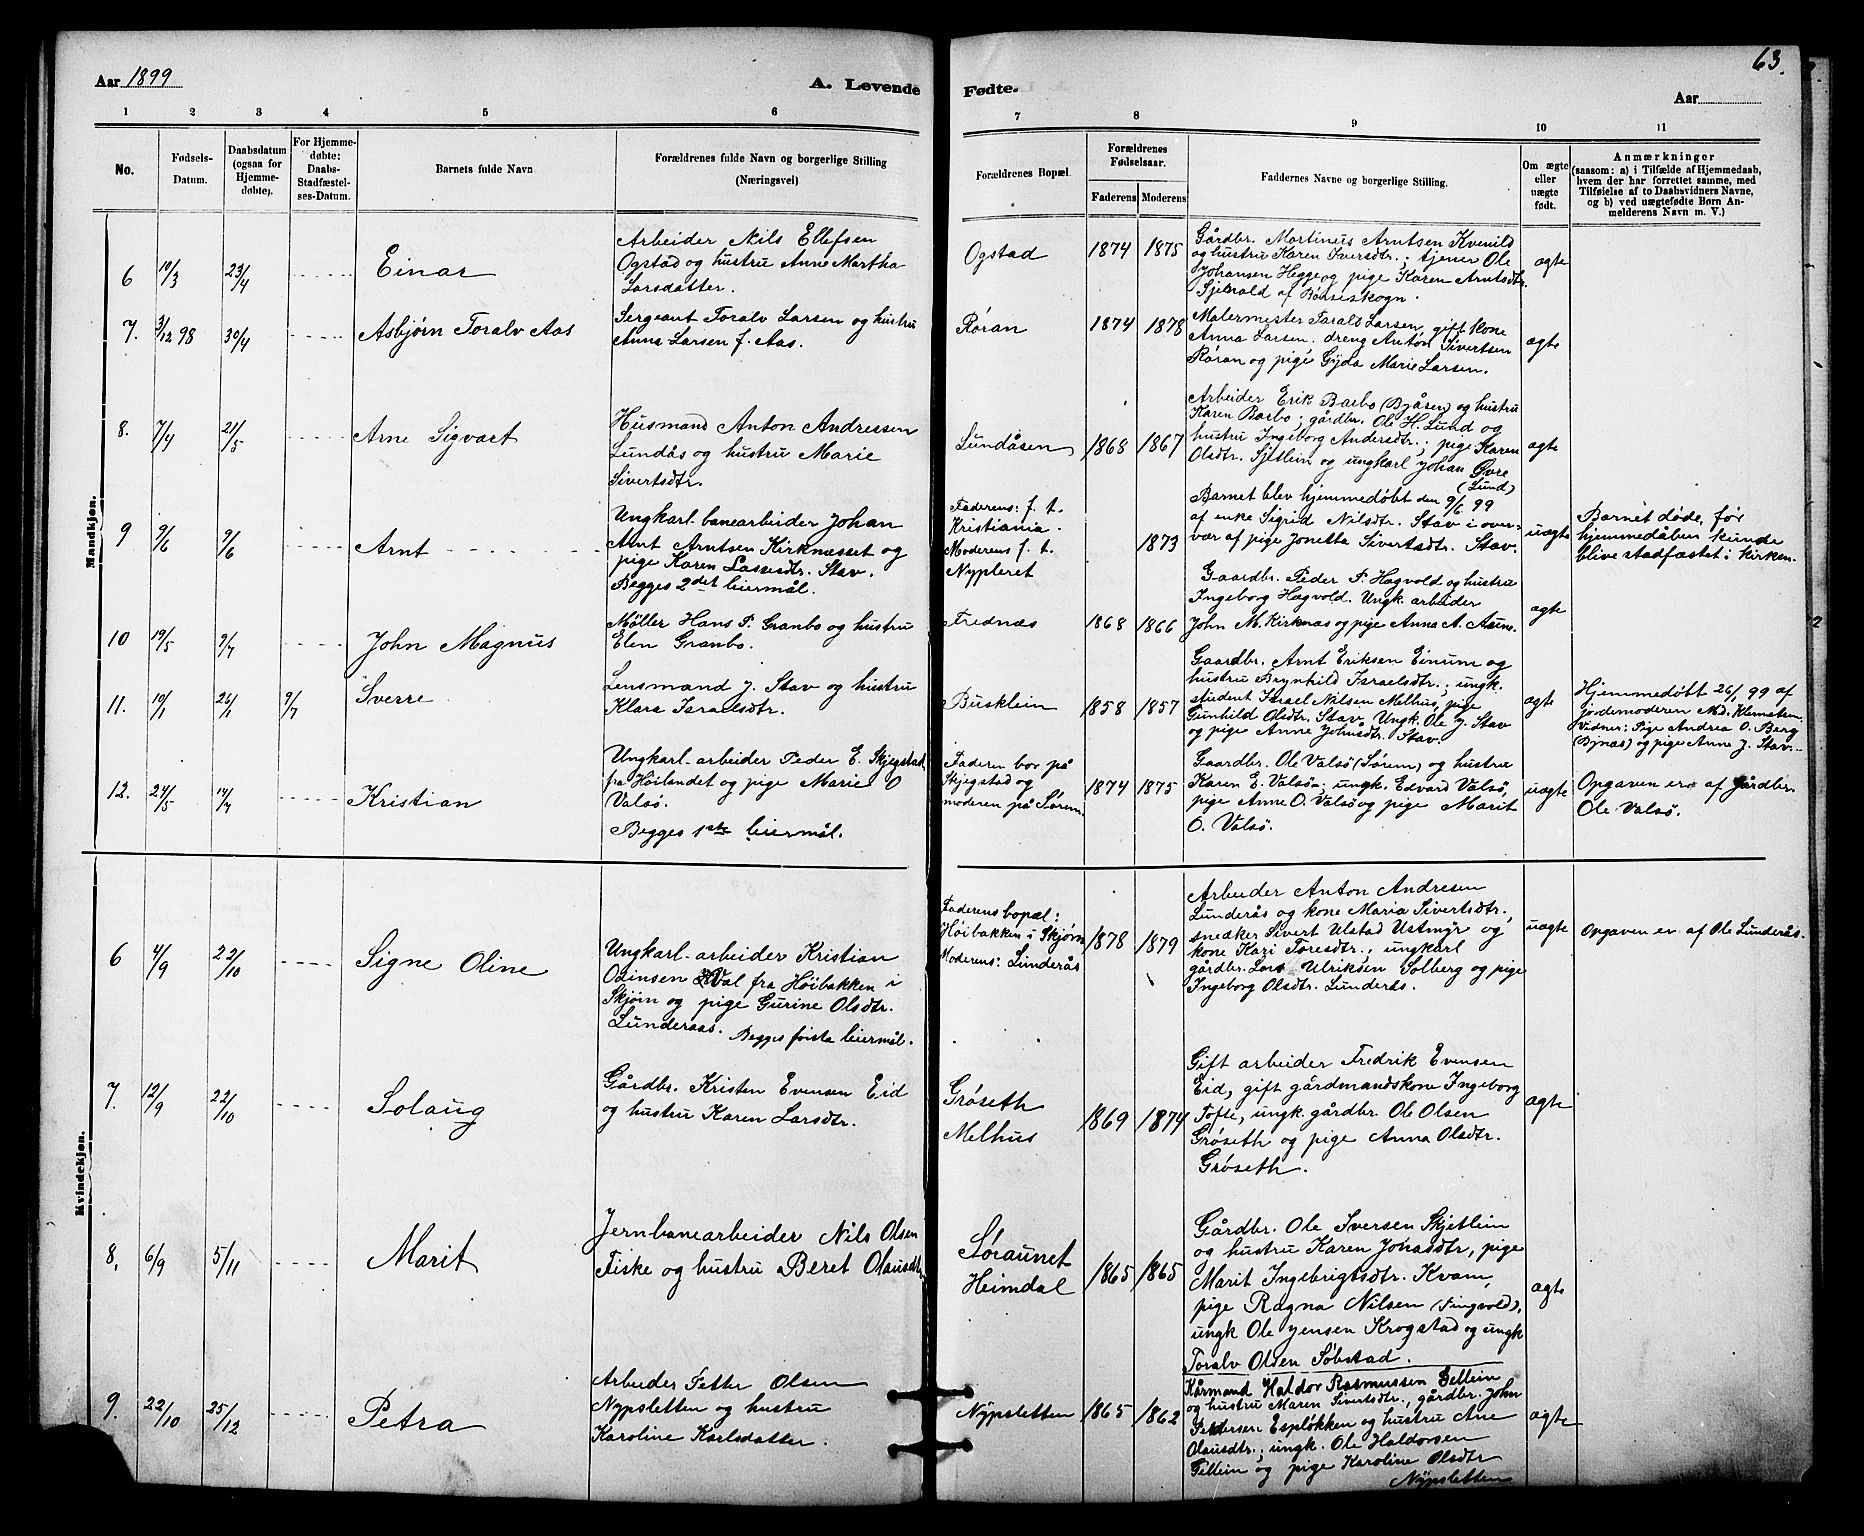 Aar 1899
A. Levende
Fødte.
63.
Aar
1 2 3 4 5 6 7 8 9 10 11
No.
Fødsels-
Datum.
Daabsdatum
(ogsaa for
Hjemme-
døbte).
For Hjemme-
døbte:
Daabs-
Stadfæstel-
ses-Datum.
Barnets fulde Navn
Forældrenes fulde Navn og borgerlige Stilling
(Næringsvei)
Forældrenes Bopæl.
Forældrenes
Fødselsaar.
Faderens Moderens
Faddernes Navne og borgerlige Stilling.
Om ægte
eller
uægte
født.
Anmærkninger
(saasom: a) i Tilfælde af Hjemmedaab,
hvem der har forrettet samme, med
Tilføielse af to Daabsvidners Navne,
og b) ved uægtefødte Børn An-
melderens Navn m. V.)
Mandkjøn.
6 10/3 23/4 Einar
Arbeider Nils Ellefsen
Ogstad og hustru Anne Martha
Larsdatter.
Ogstad 1874 1875
Gårdbr. Martinus Arntsen Kvenild
og hustru Karen Iversdtr.; tjener Ole
Johansen Hegge og pige Karen Arntsdtr.
Sjetnald af Bønseskogn.
ægte
7. 3/12 98 30/4 Asbjørn Toralv Aas
Sergeant Toralv Larsen og hustru
Anna Larsen f. Aas.
Røran 1874 1878
Malermester Tarald Larsen, gift kone
Anna Larsen. dreng Anton Sivertsen
Røran og pige Gyda Marie Larsen.
ægte
8. 7/4 21/5 Arne Sigvart
Husmand Anton Andressen
Lundås og hustru Marie
Sivertsdtr.
Lundåsen 1868 1867
Arbeider Erik Barbo (Bjåsen) og hustru
Karen Barbo; gårdbr. Ole H. Lund og
hustru Ingeborg Andersdtr.; pige Karen
Olsdtr. Sjetlein og ungkarl Johan Øvre
(Lund)
ægte
9 9/6 9/6 Arnt
Ungkarl banearbeider Johan
Arnt Arntsen Kirknæsset og
pige Karen Lassesdtr. Stav.
Begges 2det leiermål.
Faderens: f. t.
Kristiania.
Moderens f. t.
Nypleret
1873
Barnet blev hjemmedøbt den 9/6 99
af enke Sigrid Nilsdtr. Stav i over-
vær af pige Jonetta Sivertsdtr. Stav.
uægte
Barnet døde, før
hjemmedåben kunde
blive stadfæstet i kirken.
10 19/5 9/7 John Magnus
Møller Hans P. Granbo og hustru
Elen Granbo.
Frednæs 1868 1866
Gaardbr. Peder P. Hægvold og hustru
Ingeborg Hægvold. Ungk. arbeider
John M. Kirknæs og pige Anna A. Aune.
ægte
11. 10/1 26/1 9/7 Sverre
Lensmand J. Stav og hustru
Klara Israelsdtr.
Busklein 1858 1857
Gaardbr. Arnt Eriksen Einum og
hustru Brynhild Israelsdtr.; ungk.
student Israel Nilsen Melhus, pige
Gunhild Olsdtr. Stav. Ungk. Ole J. Stav
og pige Anne Johnsdtr. Stav.
ægte
Hjemmedøbt 26/1 99 af
jordemoderen Md. Klemetsen.
Vidner: Pige Andrea O. Berg
(Bynæs) og pige Anne J. Stav.
12. 24/5 14/7 Kristian
Ungkarl-arbeider Peder E. Skjegstad
fra Høilandet og pige Marie O
Valsø.
Begges 1ste leiermål.
Faderen bor på
Skjegstad og
moderen på Sørem
1874 1875
Gaardbr. Ole Valsø (Sørem) og hustru
Karen E. Valsø; ungk. Edvard Valsø,
pige Anne O. Valsø og pige Marit
O. Valsø.
uægte
Opgaven er af Gårdbr.
Ole Valsø.
Kvindekjøn.
6 4/9 22/10 Signe Oline
Ungkarl-arbeider Kristian
Odinsen Hval fra Høibakken i
Skjørn og pige Gurine Olsdtr.
Lunderaas. Begges første leiermål.
Faderens bopæl:
Høibakken i Skjørn
Moderens: Lunderås
1878 1879
Arbeider Anton Andresen
Lunderås og kone Maria Sivertsdtr.,
snedker Sivert Ulstad Ustmyr og
kone Kari Toresdtr.; ungkarl
gårdbr. Lars Ulriksen Solberg og pige
Ingeborg Olsdtr. Lunderås.
uægte
Opgaven er af Ole Lunderås.
7. 12/9 22/10 Solaug
Gårdbr. Kristen Evensen Eid
og hustru Karen Larsdtr.
Grøseth
Melhus
1869 1874
Gift arbeider Fredrik Evensen
Eid, gift gårdmandskone Ingeborg
Tofte, ungk. gårdbr. Ole Olsen
Grøseth og pige Anna Olsdtr.
Grøseth.
ægte
8. 6/9 5/11 Marit
Jernbanearbeider Nils Olsen
Fiske og hustru Beret Olausdtr.
Søraunet
Heimdal
1865 1865
Gårdbr. Ole Iversen Skjetlein
og hustru Karen Jonasdtr, pige
Marit Ingebrigtsdtr. Kvam,
pige Ragna Nilsen (Tingvold),
ungk Ole Jensen Krogstad og ungk
Toralv Olsen Søbstad.
ægte
9. 22/10 25/12 Petra
Arbeider Petter Olsen
Nypsletten og hustru
Karoline Karlsdatter.
Nypsletten 1865 1862
Kårmand Haldor Rasmussen Gellein
og hustru Maren Sivertsdtr., gårdbr. John
Pedersen Espløkken og hustru Ane
Olausdtr.; ungk. Ole Haldorsen
Gellein og pige Karoline Olsdtr
Nypsletten
ægte